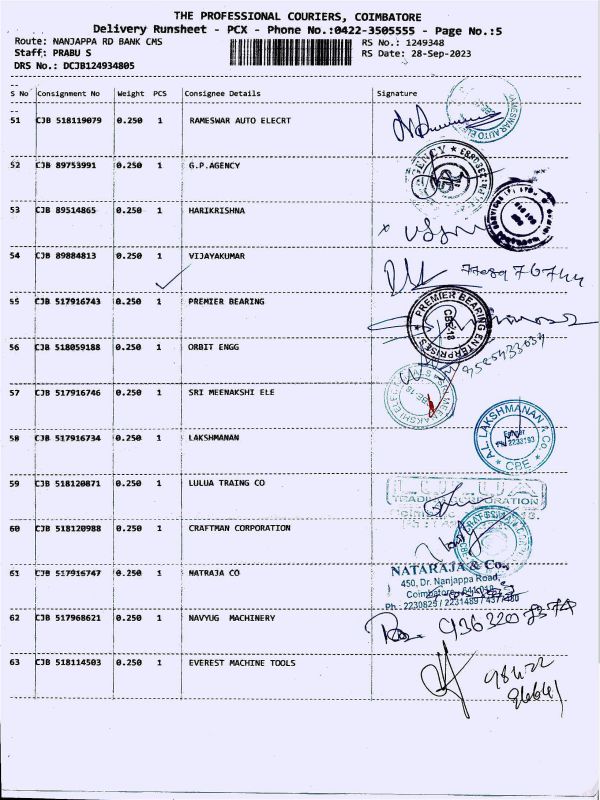 THE PROFESSIONAL COURIERS, COIMBATORE
Delivery Runsheet - PCX - Phone No.:0422-3505555 - Page No.:5
Route: NANJAPPA RD BANK CMS RS No.: 1249348
Staff: PRABU S RS Date: 28-Sep-2023
DRS No.: DCJB124934805
S No Consignment No Weight PCS Consignee Details Signature
51 CJB 518119079 0.250 1 RAMESWAR AUTO ELECRT
52 CJB 89753991 0.250 1 G.P.AGENCY
53 CJB 89514865 0.250 1 HARIKRISHNA
54 CJB 89884813 0.250 1 VIJAYAKUMAR
55 CJB 517916743 0.250 1 PREMIER BEARING
PREMIER BEARING ENTERPRISES
CBE-18
56 CJB 518059188 0.250 1 ORBIT ENGG
9525433034
57 CJB 517916746 0.250 1 SRI MEENAKSHI ELE
58 CJB 517916734 0.250 1 LAKSHMANAN
A.L. LAKSHMANAN & Co
CBE
59 CJB 518120871 0.250 1 LULUA TRAING CO
LULUA
TRADING CORPORATION
60 CJB 518120988 0.250 1 CRAFTMAN CORPORATION
61 CJB 517916747 0.250 1 NATRAJA CO
NATARAJA & Co.,
450, Dr. Nanjappa Road,
Coimbatore - 641 018
Ph : 2230829 / 2231489 / 4377480
62 CJB 517968621 0.250 1 NAVYUG MACHINERY
63 CJB 518114503 0.250 1 EVEREST MACHINE TOOLS